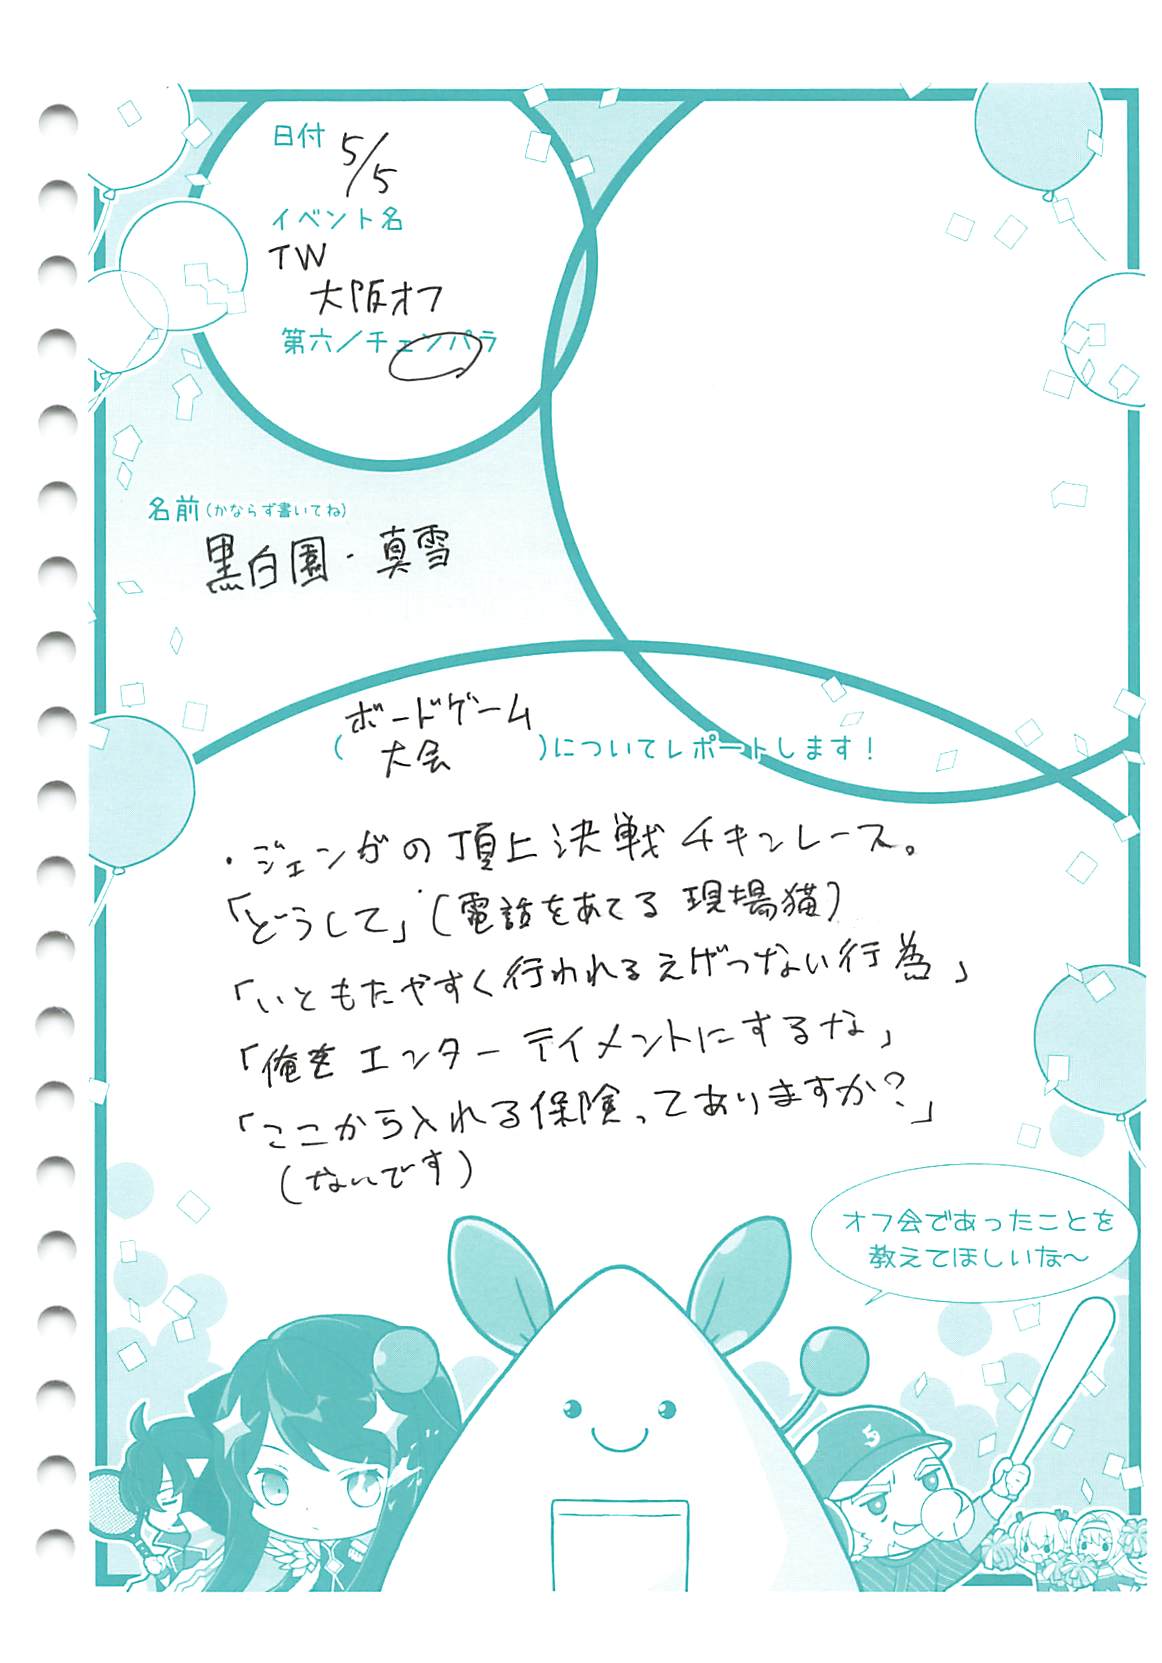 日付
5/5
イベント名
TW
大阪オフ
第六/チェンパラ
名前(かならず書いてね)
黒白園・真雪
ボードゲーム
(大会)についてレポートします!
・ジェンガの頂上決戦チキンレース。
「どうして」(電話をあてる現場猫)
「いともたやすく行われるえげつない行為」
「俺をエンターテイメントにするな」
「ここから入れる保険ってありますか?」
(ないです)
オフ会であったことを
教えてほしいな〜
5